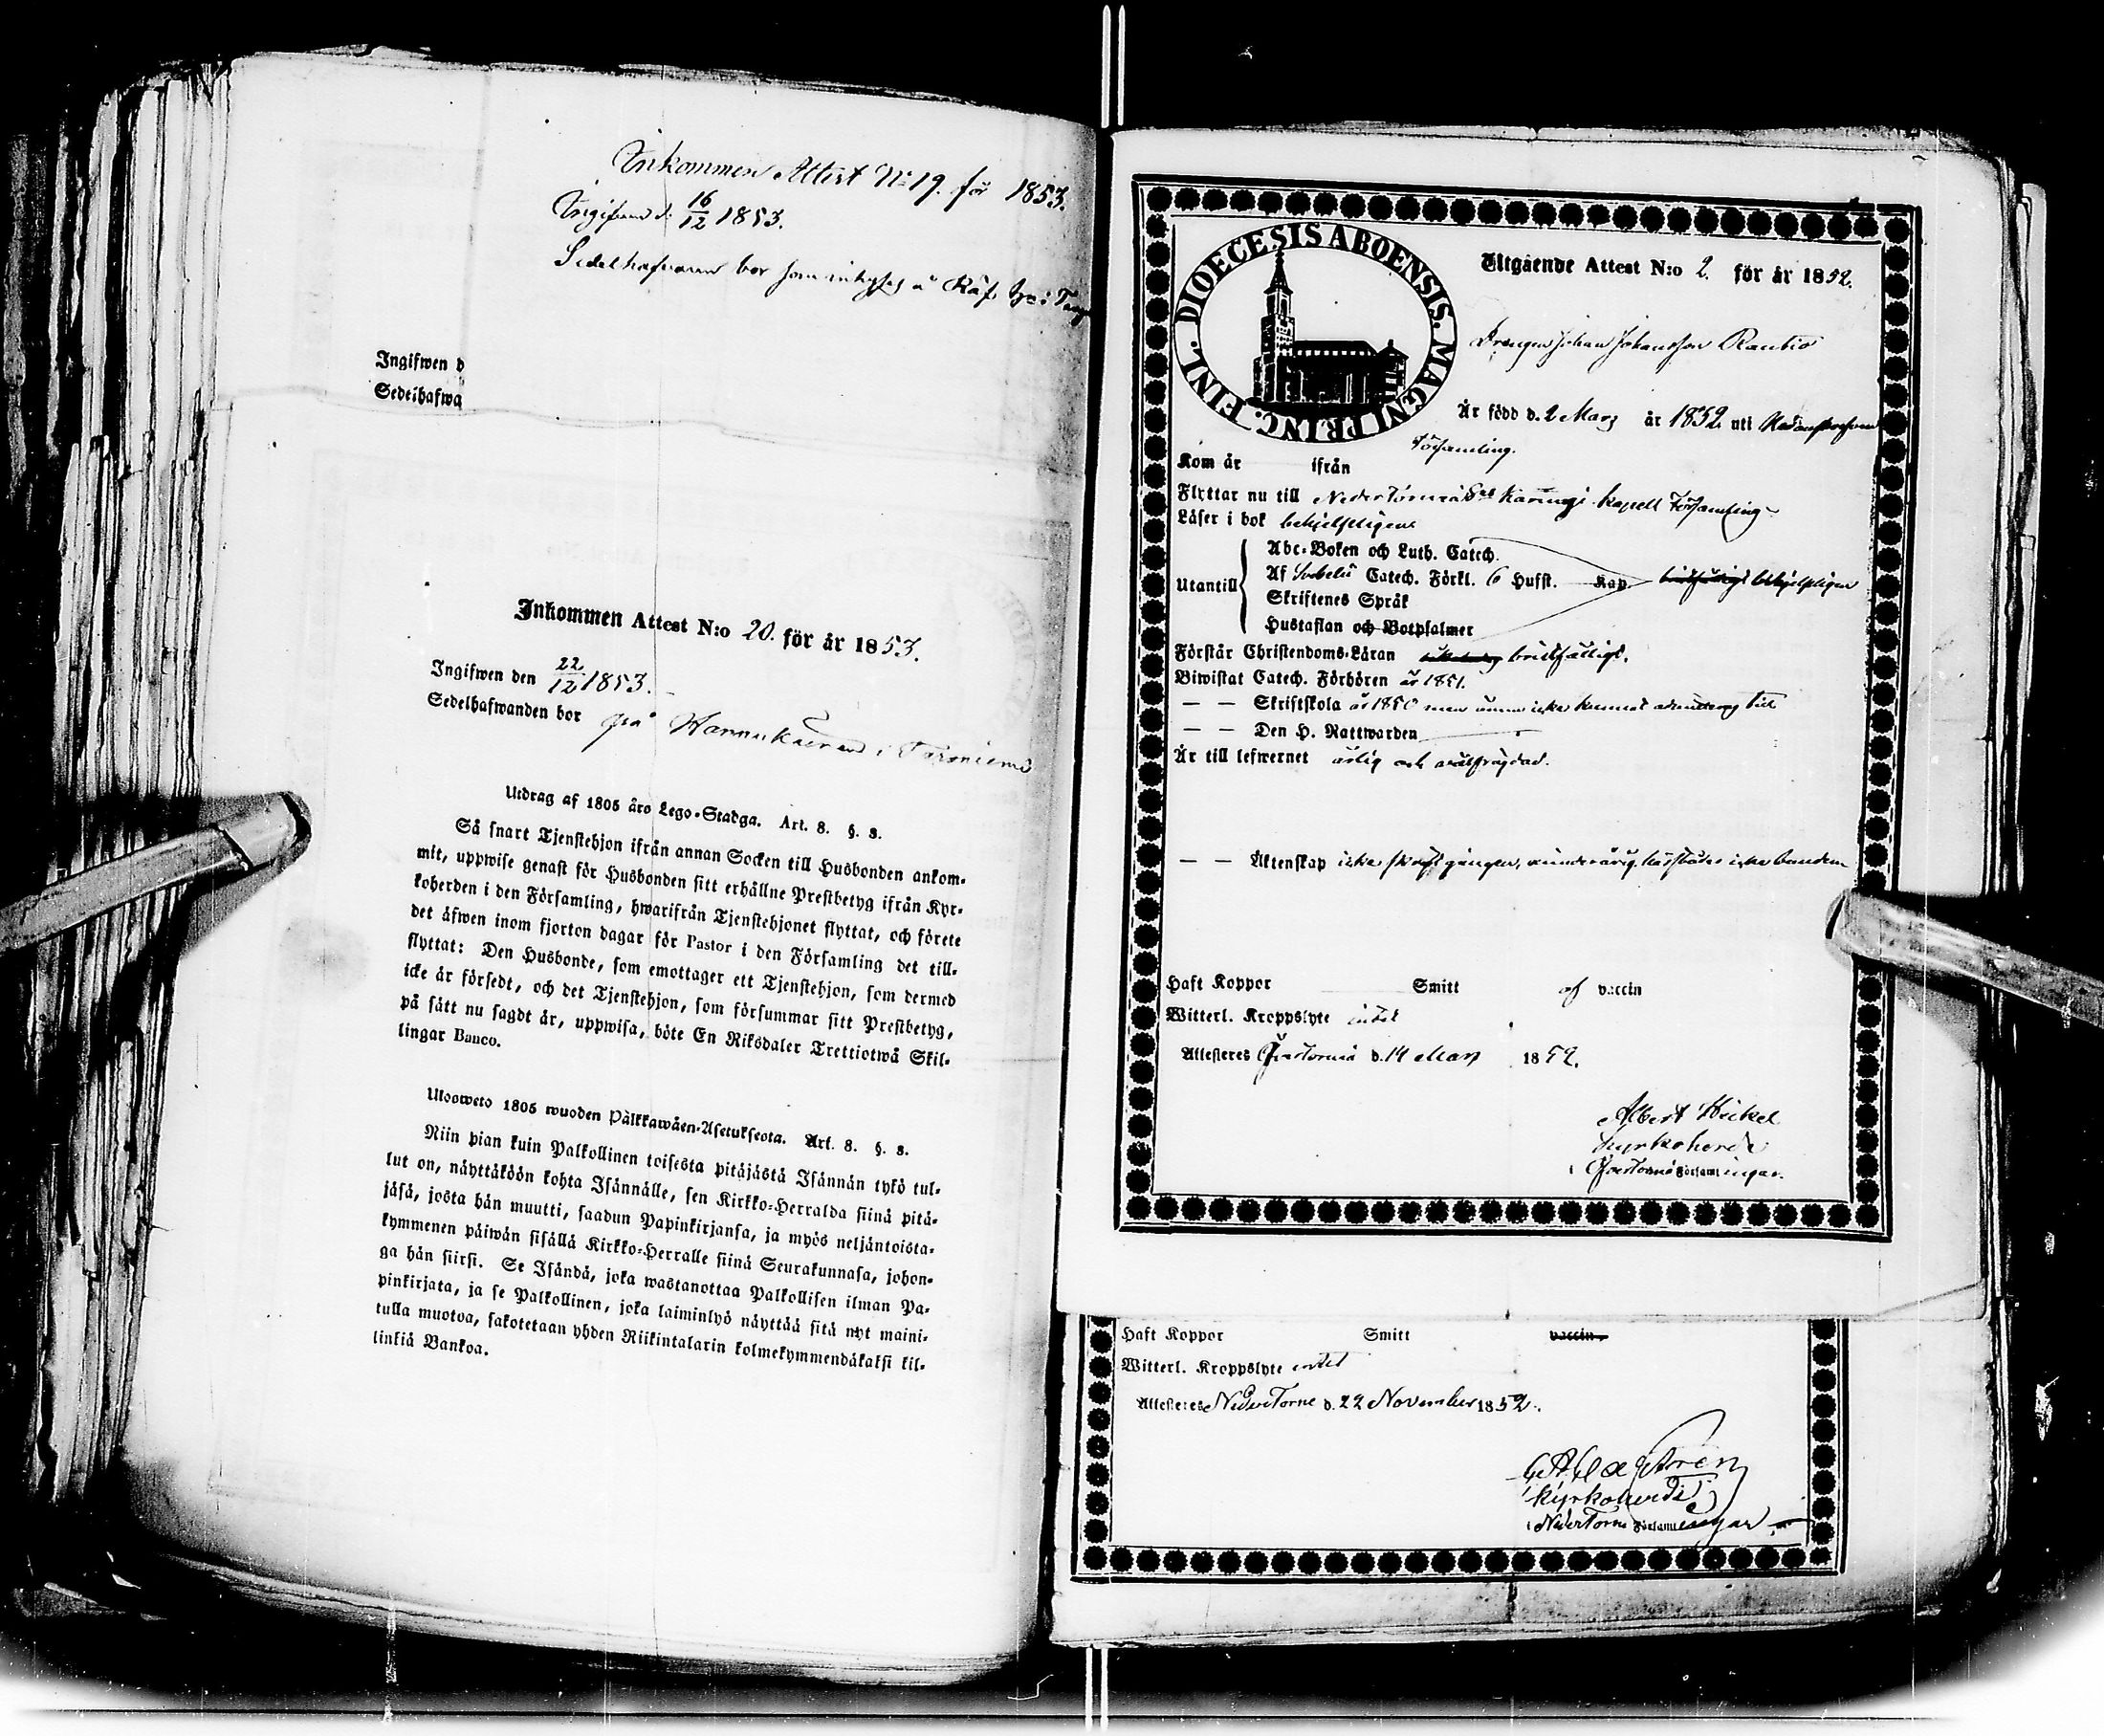 Inkommen Attest No 19. för 1853.
Ingifven d. 16/12 1853.
Sedelhafvaren bor som inhyses å
Ingifwen d
Sedelhafwa
Inkommen Attest N:o 20. för år 1853.
Ingifwen den 22/12 1853.
Sedelhafwanden bor på i
Utdrag af 1805 års Lego-Stadga. Art. 8. §. 8.
Så snart Tjenstehjon ifrån annan Socken till Husbonden ankom-
mit, uppwise genast för Husbonden sitt erhållne Prestbetyg ifrån Kyr-
koherden i den Församling, hwarifrån Tjenstehjonet flyttat, och förete
det äfwen inom fjorton dagar för Pastor i den Församling det till-
flyttat: Den Husbonde, som emottager ett Tjenstehjon, som dermed
icke är försedt, och det Tjenstehjon, som försummar sitt Prestbetyg,
på sätt nu sagdt är, uppwisa, böte En Riksdaler Trettiotwå Skil-
lingar Banco.
Ulosweto 1805 wuoden Palkkawäen-Asetuksesta. Art. 8. §. 8.
Niin pian kuin Palkollinen toisesta pitäjästä Isännän tykö tul-
lut on, näyttäköön kohta Isännälle, sen Kirkko-Herralda siinä pitä-
jäsä, josta hän muutti, saadun Papinkirjansa, ja myös neljäntoista-
kymmenen päiwän sisällä Kirkko-Herralle siinä Seurakunnasa, johon-
ga hän siirsi. Se Isändä, joka wastanottaa Palkollisen ilman Pa-
pinkirjata, ja se Palkollinen, joka laiminlyö näyttää sitä nyt maini-
tulla muotoa, sakotetaan yhden Riikintalarin kolmekymmendäkaksi kil-
linkiä Bankoa.
DIOECESIS ABOENSIS. MAGNI PRINC. FINL.
Utgående Attest N:o 2. för år 1852.
Drengen Johan Johansson Rautio
Är född d. 2 Mars år 1832 uti
Församling.
Kom år ifrån
Flyttar nu till Neder Torneå Karungi kapell Församling
Läser i bok behjelpligen
Utantill
Abc-Boken och Luth. Catech.
Af Svebelii Catech. Förkl. 6 Hufst. Kap. behjelpligen
Skriftenes Språk
Hustaflan och Botpsalmer
Förstår Christendoms-Läran bristfälligt.
Biwistat Catech. Förhören år 1851.
— — Skriftskola år 1850 men ännu icke kunnat till
— — Den H. Nattwarden
Är till lefwernet ärlig och wälfrägdad.
— — Äktenskap icke skriftgången, minderårig, härstädes icke bunden
Haft Koppor Smitt af vaccin
Witterl. Kroppslyte intet
Attesteras Öfvertorneå d. 14 Mars 1852.
Albert Heikel
Kyrkoherde
i Öfvertorneå Församlingar.
Haft Koppor Smitt vaccin.
Witterl. Kroppslyte intet
Attesteras NederTorne d. 22 November 1852.
Kyrkoherde
i NederTorne Församlingar